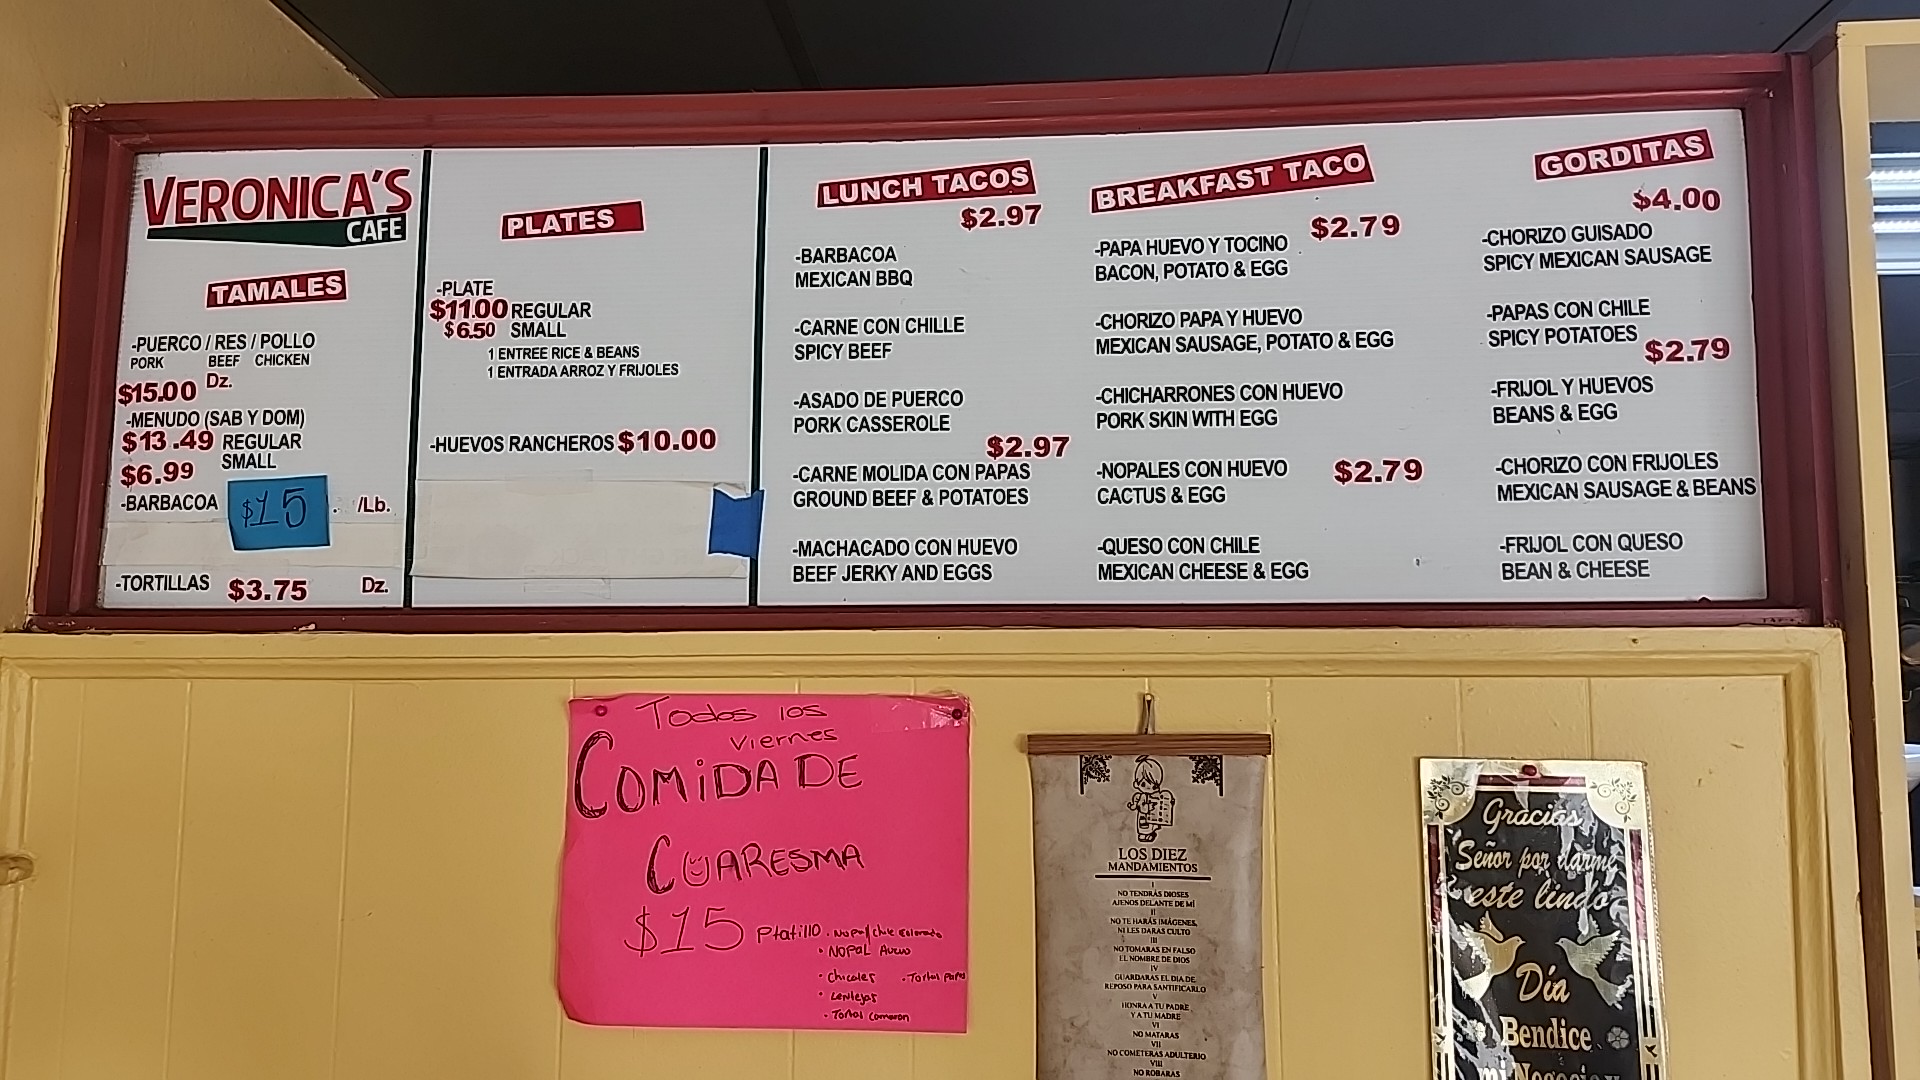 VERONICA'S
CAFE
TAMALES
-PUERCO / RES / POLLO
PORK BEEF CHICKEN
$15.00 Dz.
-MENUDO (SAB Y DOM)
$13.49 REGULAR
$6.99 SMALL
-BARBACOA $15 . /Lb.
-TORTILLAS $3.75 Dz.
PLATES
-PLATE
$11.00 REGULAR
$6.50 SMALL
1 ENTREE RICE & BEANS
1 ENTRADA ARROZ Y FRIJOLES
-HUEVOS RANCHEROS $10.00
LUNCH TACOS
$2.97
-BARBACOA
MEXICAN BBQ
-CARNE CON CHILLE
SPICY BEEF
-ASADO DE PUERCO
PORK CASSEROLE
$2.97
-CARNE MOLIDA CON PAPAS
GROUND BEEF & POTATOES
-MACHACADO CON HUEVO
BEEF JERKY AND EGGS
BREAKFAST TACO
$2.79
-PAPA HUEVO Y TOCINO
BACON, POTATO & EGG
-CHORIZO PAPA Y HUEVO
MEXICAN SAUSAGE, POTATO & EGG
-CHICHARRONES CON HUEVO
PORK SKIN WITH EGG
-NOPALES CON HUEVO $2.79
CACTUS & EGG
-QUESO CON CHILE
MEXICAN CHEESE & EGG
GORDITAS
$4.00
-CHORIZO GUISADO
SPICY MEXICAN SAUSAGE
-PAPAS CON CHILE
SPICY POTATOES
$2.79
-FRIJOL Y HUEVOS
BEANS & EGG
-CHORIZO CON FRIJOLES
MEXICAN SAUSAGE & BEANS
-FRIJOL CON QUESO
BEAN & CHEESE
Todos los
viernes
COMIDA DE
CUARESMA
$15 Platillo . Nopal/chile Colorado
• NOPAL
• Chicales . Tortas papas
• Lentejas
• Tortas Camaron
LOS DIEZ
MANDAMIENTOS
I
NO TENDRÁS DIOSES
AJENOS DELANTE DE MÍ
II
NO TE HARÁS IMÁGENES,
NI LES DARAS CULTO
III
NO TOMARAS EN FALSO
EL NOMBRE DE DIOS
IV
GUARDARAS EL DIA DE
REPOSO PARA SANTIFICARLO
V
HONRA A TU PADRE
Y A TU MADRE
VI
NO MATARAS
VII
NO COMETERAS ADULTERIO
VIII
NO ROBARAS
Gracias
Señor por darme
este lindo
Día
Bendice
mi Negocio y